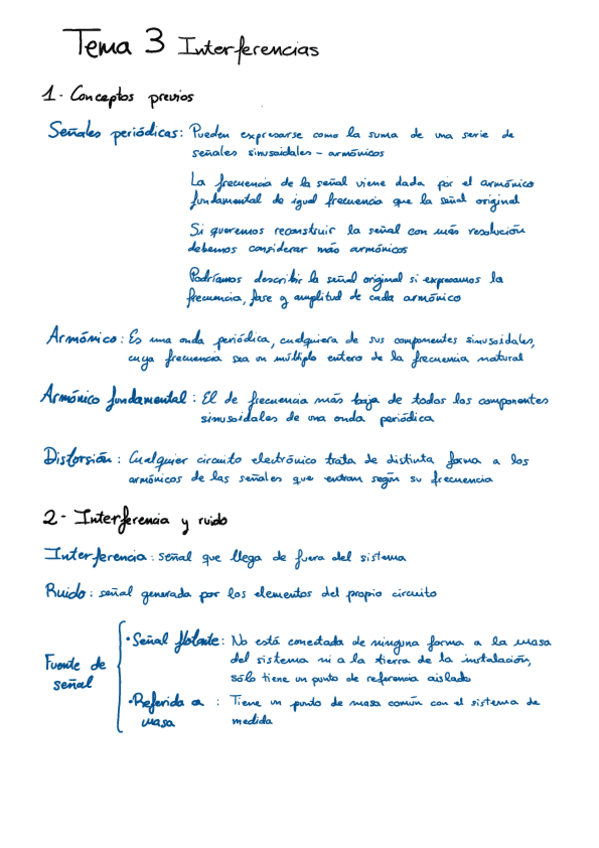 Tema 3 Interferencias
1- Conceptos previos
Señales periódicas: Pueden expresarse como la suma de una serie de
señales sinusoidales - armónicos
La frecuencia de la señal viene dada por el armónico
fundamental de igual frecuencia que la señal original
Si queremos reconstruir la señal con más resolución
debemos considerar más armónicos
Podríamos describir la señal original si expresamos la
frecuencia, fase y amplitud de cada armónico
Armónico: Es una onda periódica, cualquiera de sus componentes sinusoidales,
cuya frecuencia sea un múltiplo entero de la frecuencia natural
Armónico fundamental: El de frecuencia más baja de todos los componentes
sinusoidales de una onda periódica
Distorsión: Cualquier circuito electrónico trata de distinta forma a los
armónicos de las señales que entran según su frecuencia
2- Interferencia y ruido
Interferencia: señal que llega de fuera del sistema
Ruido: señal generada por los elementos del propio circuito
Fuente de
señal
• Señal flotante: No está conectada de ninguna forma a la masa
del sistema ni a la tierra de la instalación,
sólo tiene un punto de referencia aislado
• Referida a : Tiene un punto de masa común con el sistema de
masa medida